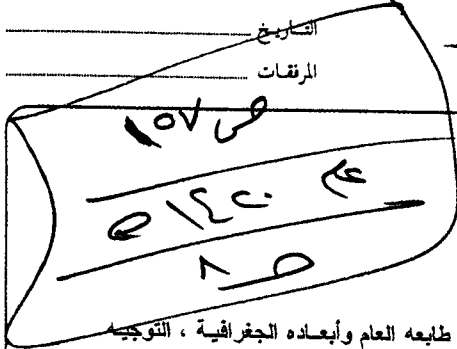 التاريخ
المرفقات
ص ١٥٧
عم ١٤٢٠ هـ
ص ٨
طابعه العام وأبعاده الجغرافية ، التوجيه